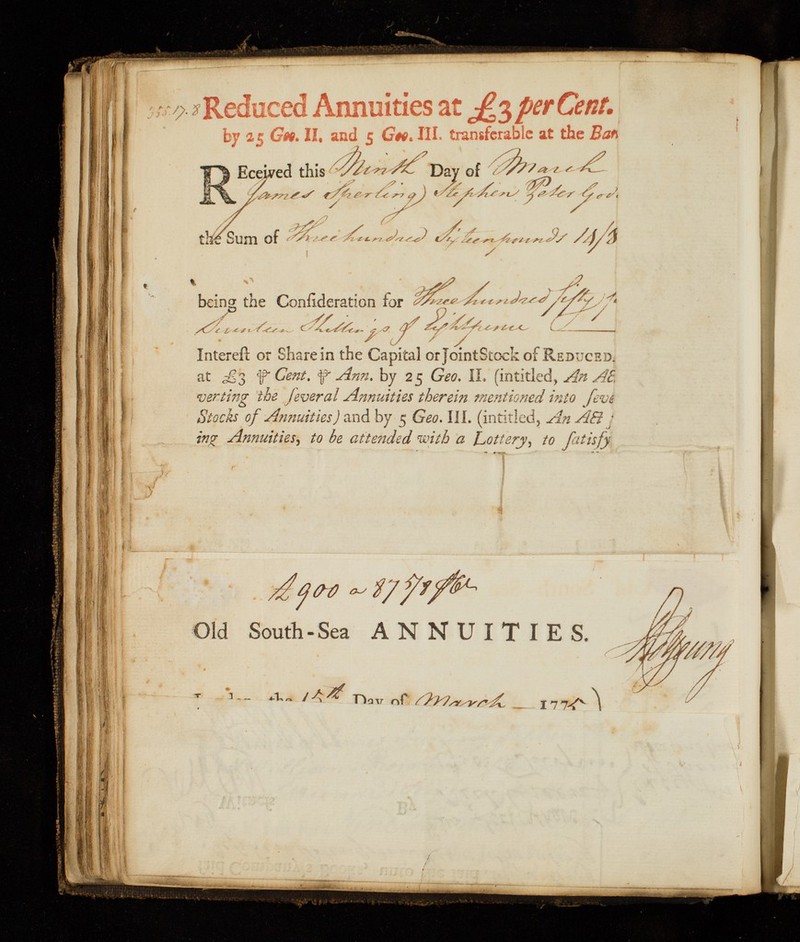 355.17.8 Reduced Annuities at £3 per Cent.
by 25 Geo. II. and 5 Geo. III. transferable at the Ban
REceived this Ninth Day of March
James Sperling Stephen Peter God
the Sum of Three hundred Sixteen pounds 14/8
being the Conſideration for Three hundred fifty
Seventeen Shillings & Eightpence
Intereſt or Share in the Capital or Joint Stock of REDUCED
at £3 ⅌ Cent. ⅌ Ann. by 25 Geo. II. (intitled, An Act
verting the ſeveral Annuities therein mentioned into ſeve
Stocks of Annuities) and by 5 Geo. III. (intitled, An Act
ing Annuities, to be attended with a Lottery, to ſatisfy
£900 a 87 5/8
Old South-Sea ANNUITIES.
the 15th Day of March 1775
Witneſs By